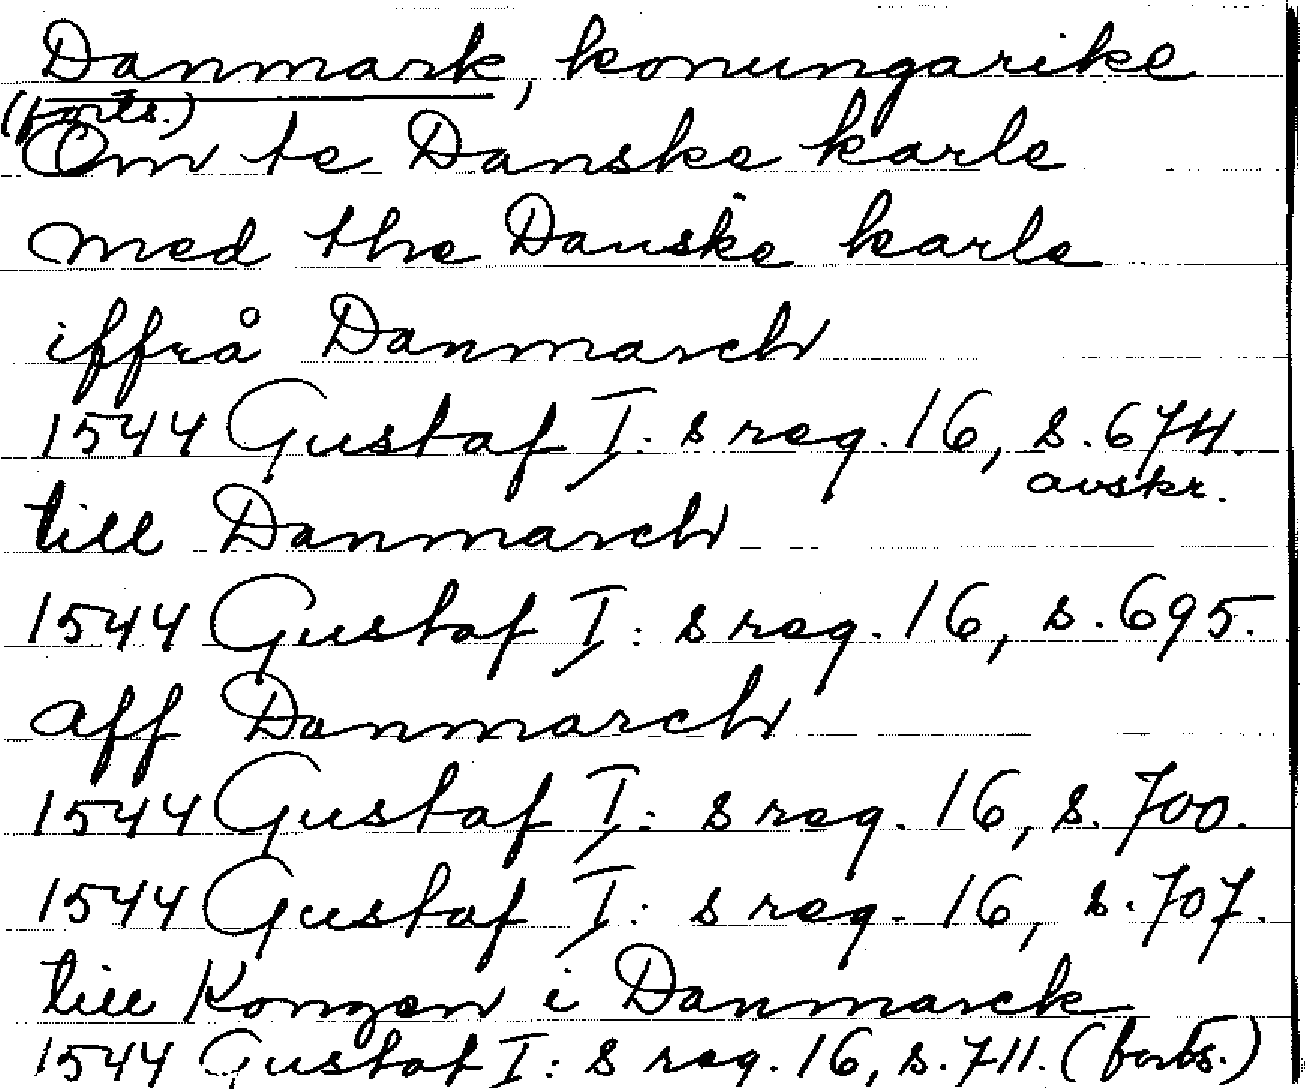 Danmark, konungarike
(forts.)
Om te Danske karle
med the Danske karle
iffrå Danmarch
1544 Gustaf I: s reg. 16, s. 674.
avskr.
till Danmarch
1544 Gustaf I: s reg. 16, s. 695.
aff Danmarch
1544 Gustaf I: s reg. 16, s. 700.
1544 Gustaf I: s reg. 16, s. 707.
till Kongen i Danmarck
1544 Gustaf I: s reg. 16, s. 711. (forts.)